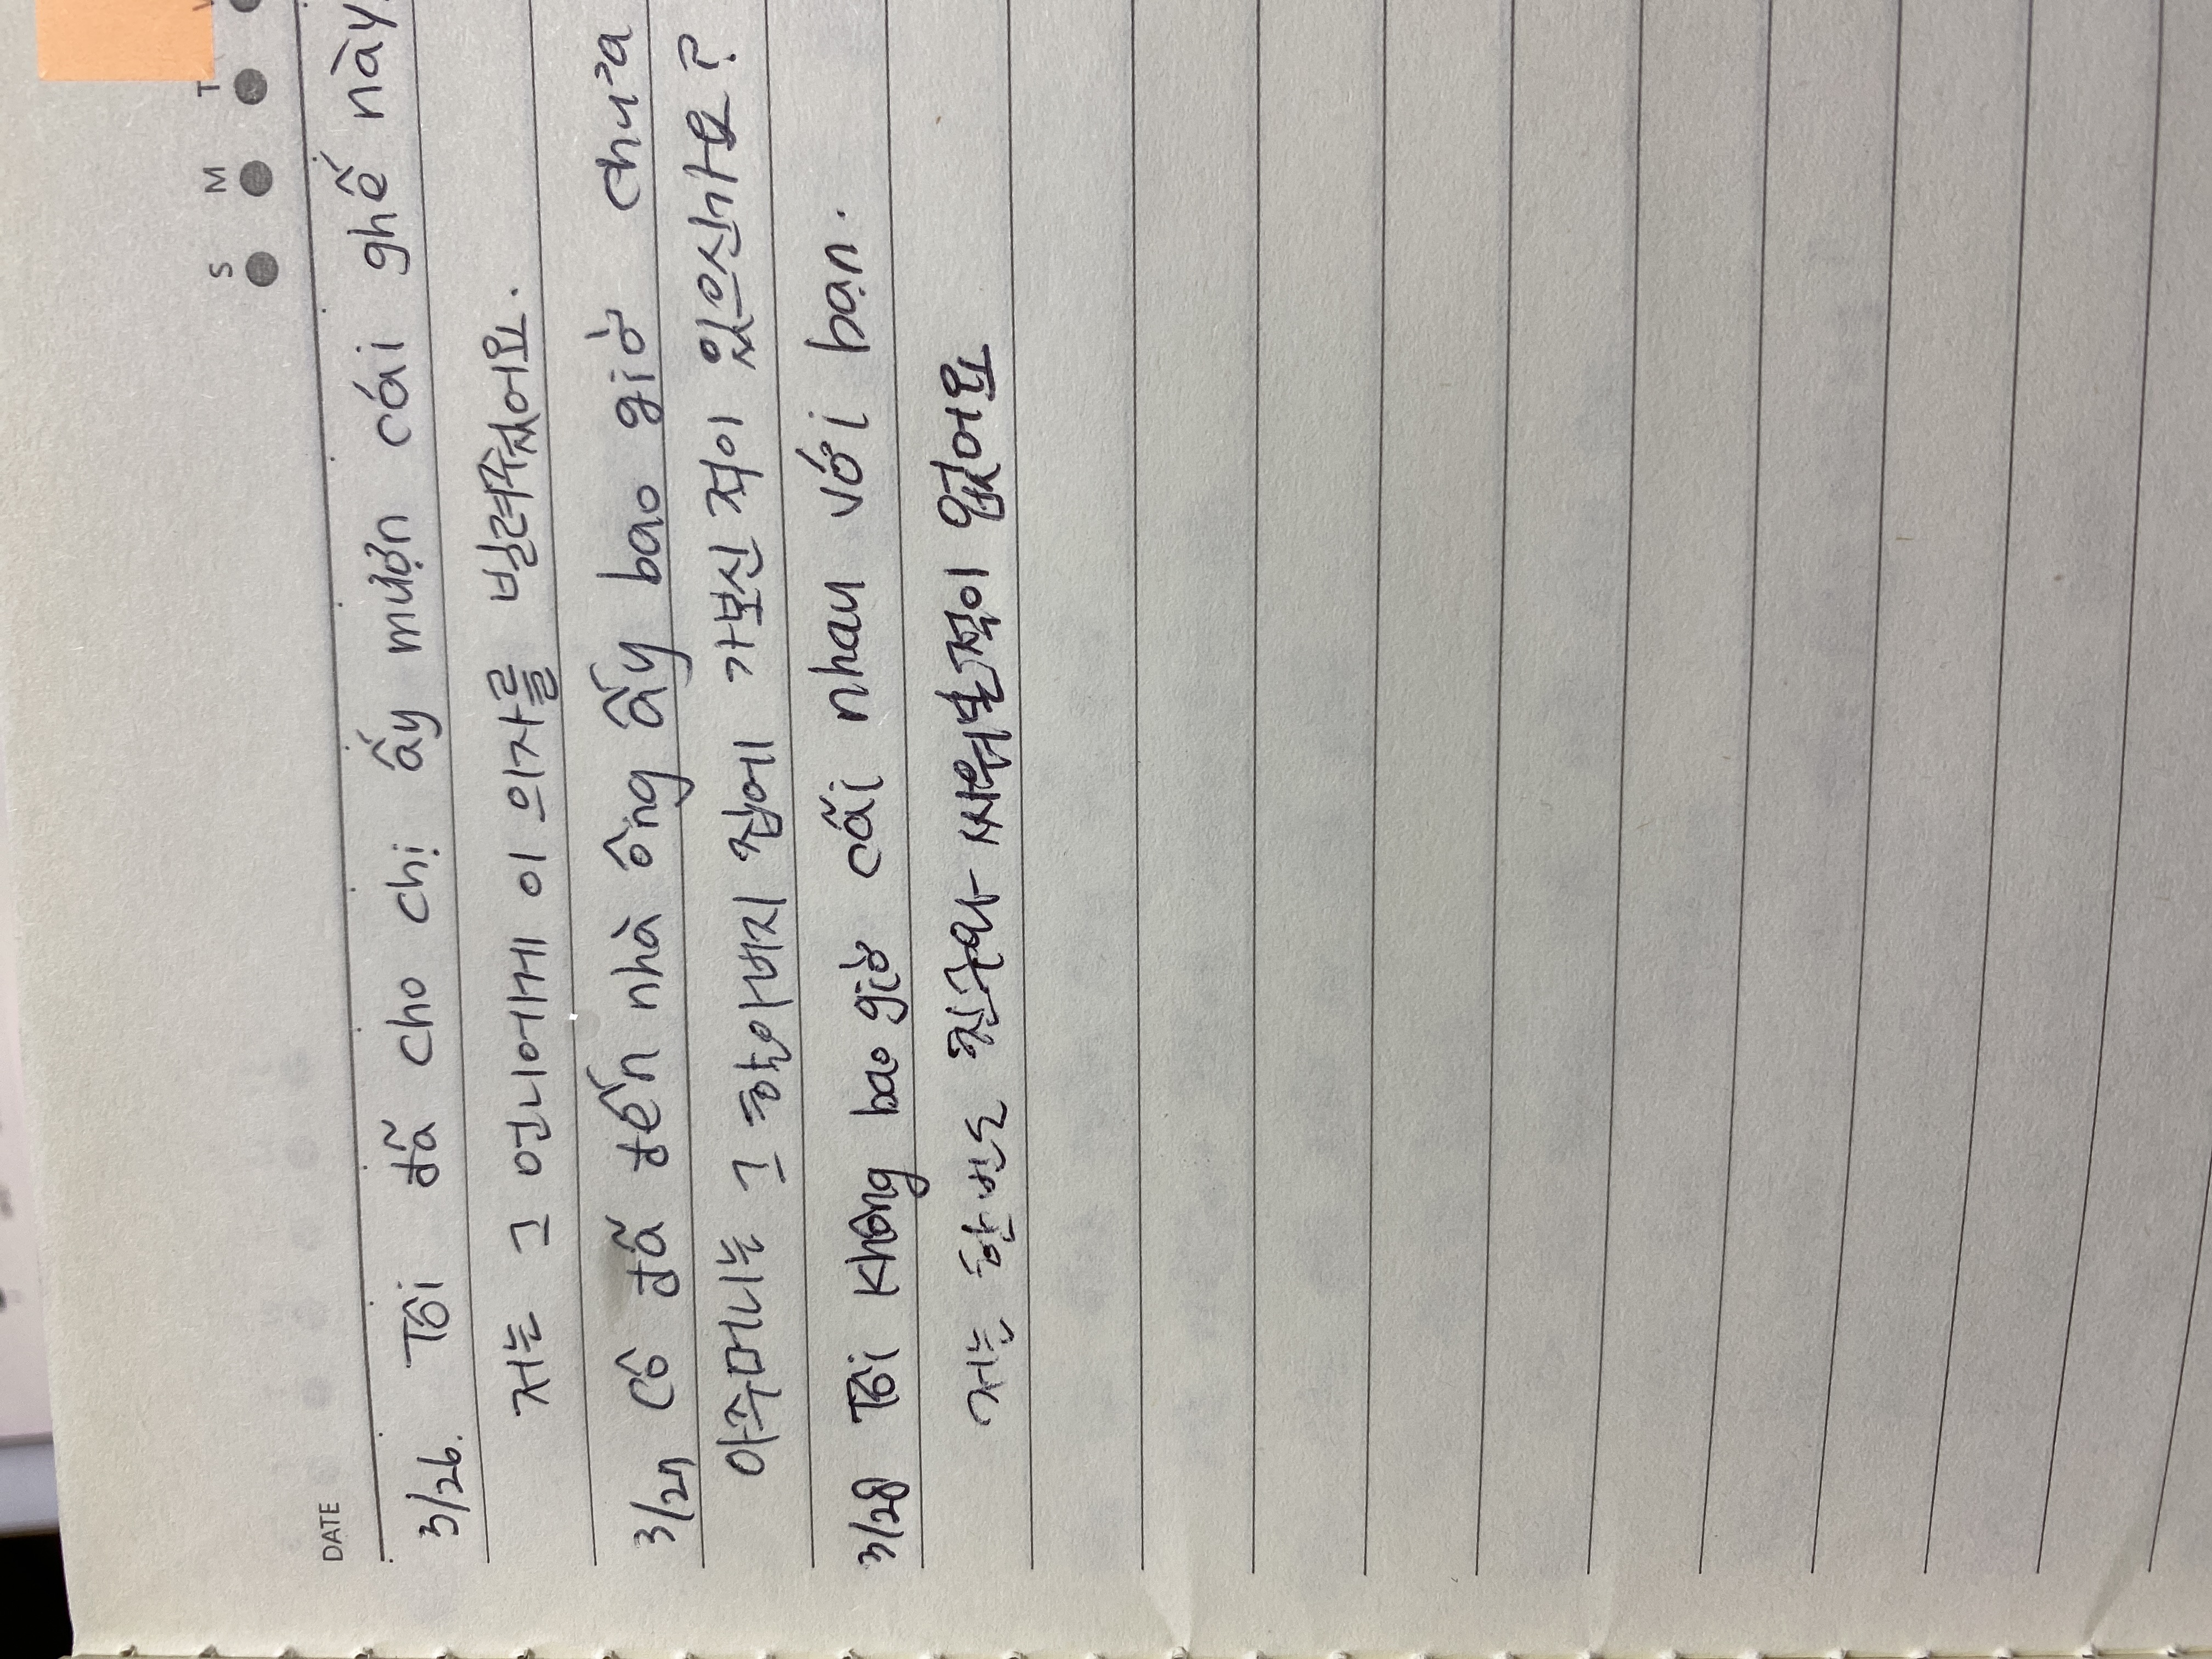 DATE
S M T
3/26. Tôi đã cho chị ấy mượn cái ghế này.
저는 그 언니에게 이 의자를 빌려주었어요.
3/27 Cô đã đến nhà ông ấy bao giờ chưa
아주머니는 그 할아버지 집에 가보신 적이 있으신가요?
3/28 Tôi không bao giờ cãi nhau với bạn.
저는 한번도 친구와 싸워본적이 없어요